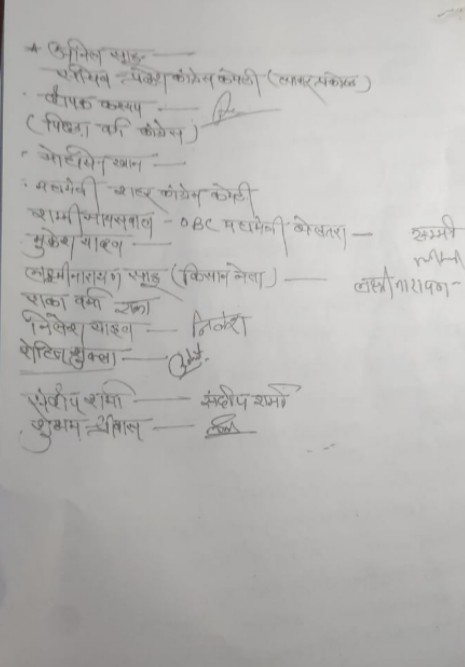 * अनिल साहू —
सचिव प्रदेश कांग्रेस कमेटी (व्यापार प्रकोष्ठ)
दीपक कश्यप —
(पिछड़ा वर्ग कांग्रेस)
खान —
महामंत्री शहर कांग्रेस कमेटी
शम्मी जायसवाल - OBC महामंत्री बेलतरा — सम्मी
मुकेश यादव —
लक्ष्मीनारायण साहू (किसान नेता) — लक्ष्मीनारायण
राका वर्मा राका
निलेश साहू — निलेश
रोहित शुक्ला —
संदीप शर्मा — संदीप शर्मा
शुभम श्रीवास —